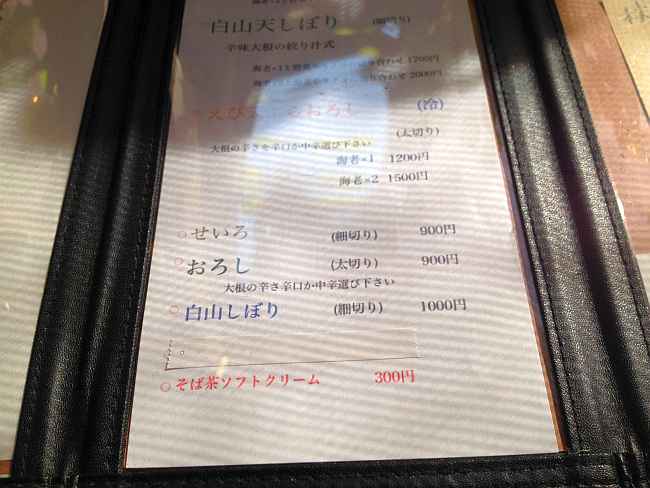 白山天しぼり (細切り)
辛味大根の絞り汁式
合わせ 1700円
合わせ 2000円
えび おろし (冷)
(太切り)
大根の辛さを辛口か中辛選び下さい
海老×1 1200円
海老×2 1500円
○せいろ (細切り) 900円
○おろし (太切り) 900円
大根の辛さ辛口か中辛選び下さい
○白山しぼり (細切り) 1000円
○そば茶ソフトクリーム 300円